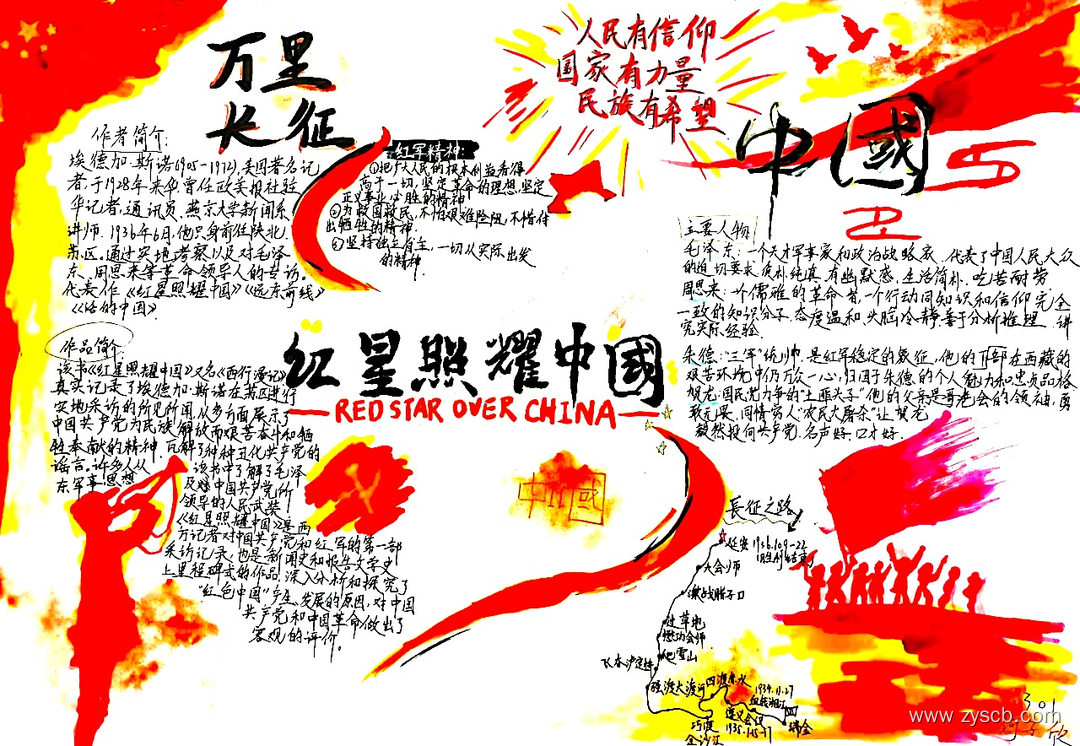 万里
长征
人民有信仰
国家有力量
民族有希望
中國
作者简介:
埃德加·斯诺(1905-1972),美国著名记
者,于1928年来华,曾任欧美报社驻
华记者,通讯员.燕京大学新闻系
讲师.1936年6月,他只身前往陕北
苏区,通过实地考察以及对毛泽
东、周恩来等革命领导人的专访。
代表作《红星照耀中国》《远东前线》
红军精神:
①把广大人民的根本利益看得
高于一切,坚定革命的理想,坚定
正义事业必胜的精神
②为救国救民,不怕艰难险阻,不惜付
出牺牲的精神.
③坚持独立自主,一切从实际出发
的精神.
主要人物
毛泽东:一个天才军事家和政治战略家.代表了中国人民大众
的迫切要求,质朴纯真,有幽默感,生活简朴,吃苦耐劳
周恩来:一个儒雅的革命者,一个行动同知识和信仰完全
一致的知识分子,态度温和,头脑冷静,善于分析推理,讲
究实际经验.
朱德:"三军"统帅,是红军稳定的象征,他的部下在西藏的
艰苦环境中仍万众一心,归因于朱德的个人魅力和忠贞品格
贺龙:国民党力争的"土匪天子"他的父亲是哥老会的领袖,勇
敢无畏,同情穷人
毅然投向共产党.名声好,口才好.
红星照耀中國
RED STAR OVER CHINA
作品简介
该书《红星照耀中国》又名《西行漫记》
真实记录了埃德加·斯诺在苏区进行
实地采访的所见所闻,从多方面展示了
中国共产党为民族解放而艰苦奋斗和牺
牲奉献的精神.瓦解了种种丑化共产党的
谣言,许多人从
该书中了解了毛泽
东军事思想
及对中国共产党所
领导的人民武装
《红星照耀中国》是西
方记者对中国共产党和红军的第一部
采访记录,也是新闻史和报告文学史
上里程碑式的作品,深入分析和探究了
"红色中国"产生、发展的原因,对中国
共产党和中国革命做出了
客观的评价.
中國
长征之路
延安 1936.10.9-22
大会师
激战腊子口
过草地
懋功会师
爬雪山
飞夺泸定桥
强渡大渡河
四渡赤水
巧渡
金沙江
遵义会议
1934.11.27
血战湘江
瑞金
301
www.zyscb.com